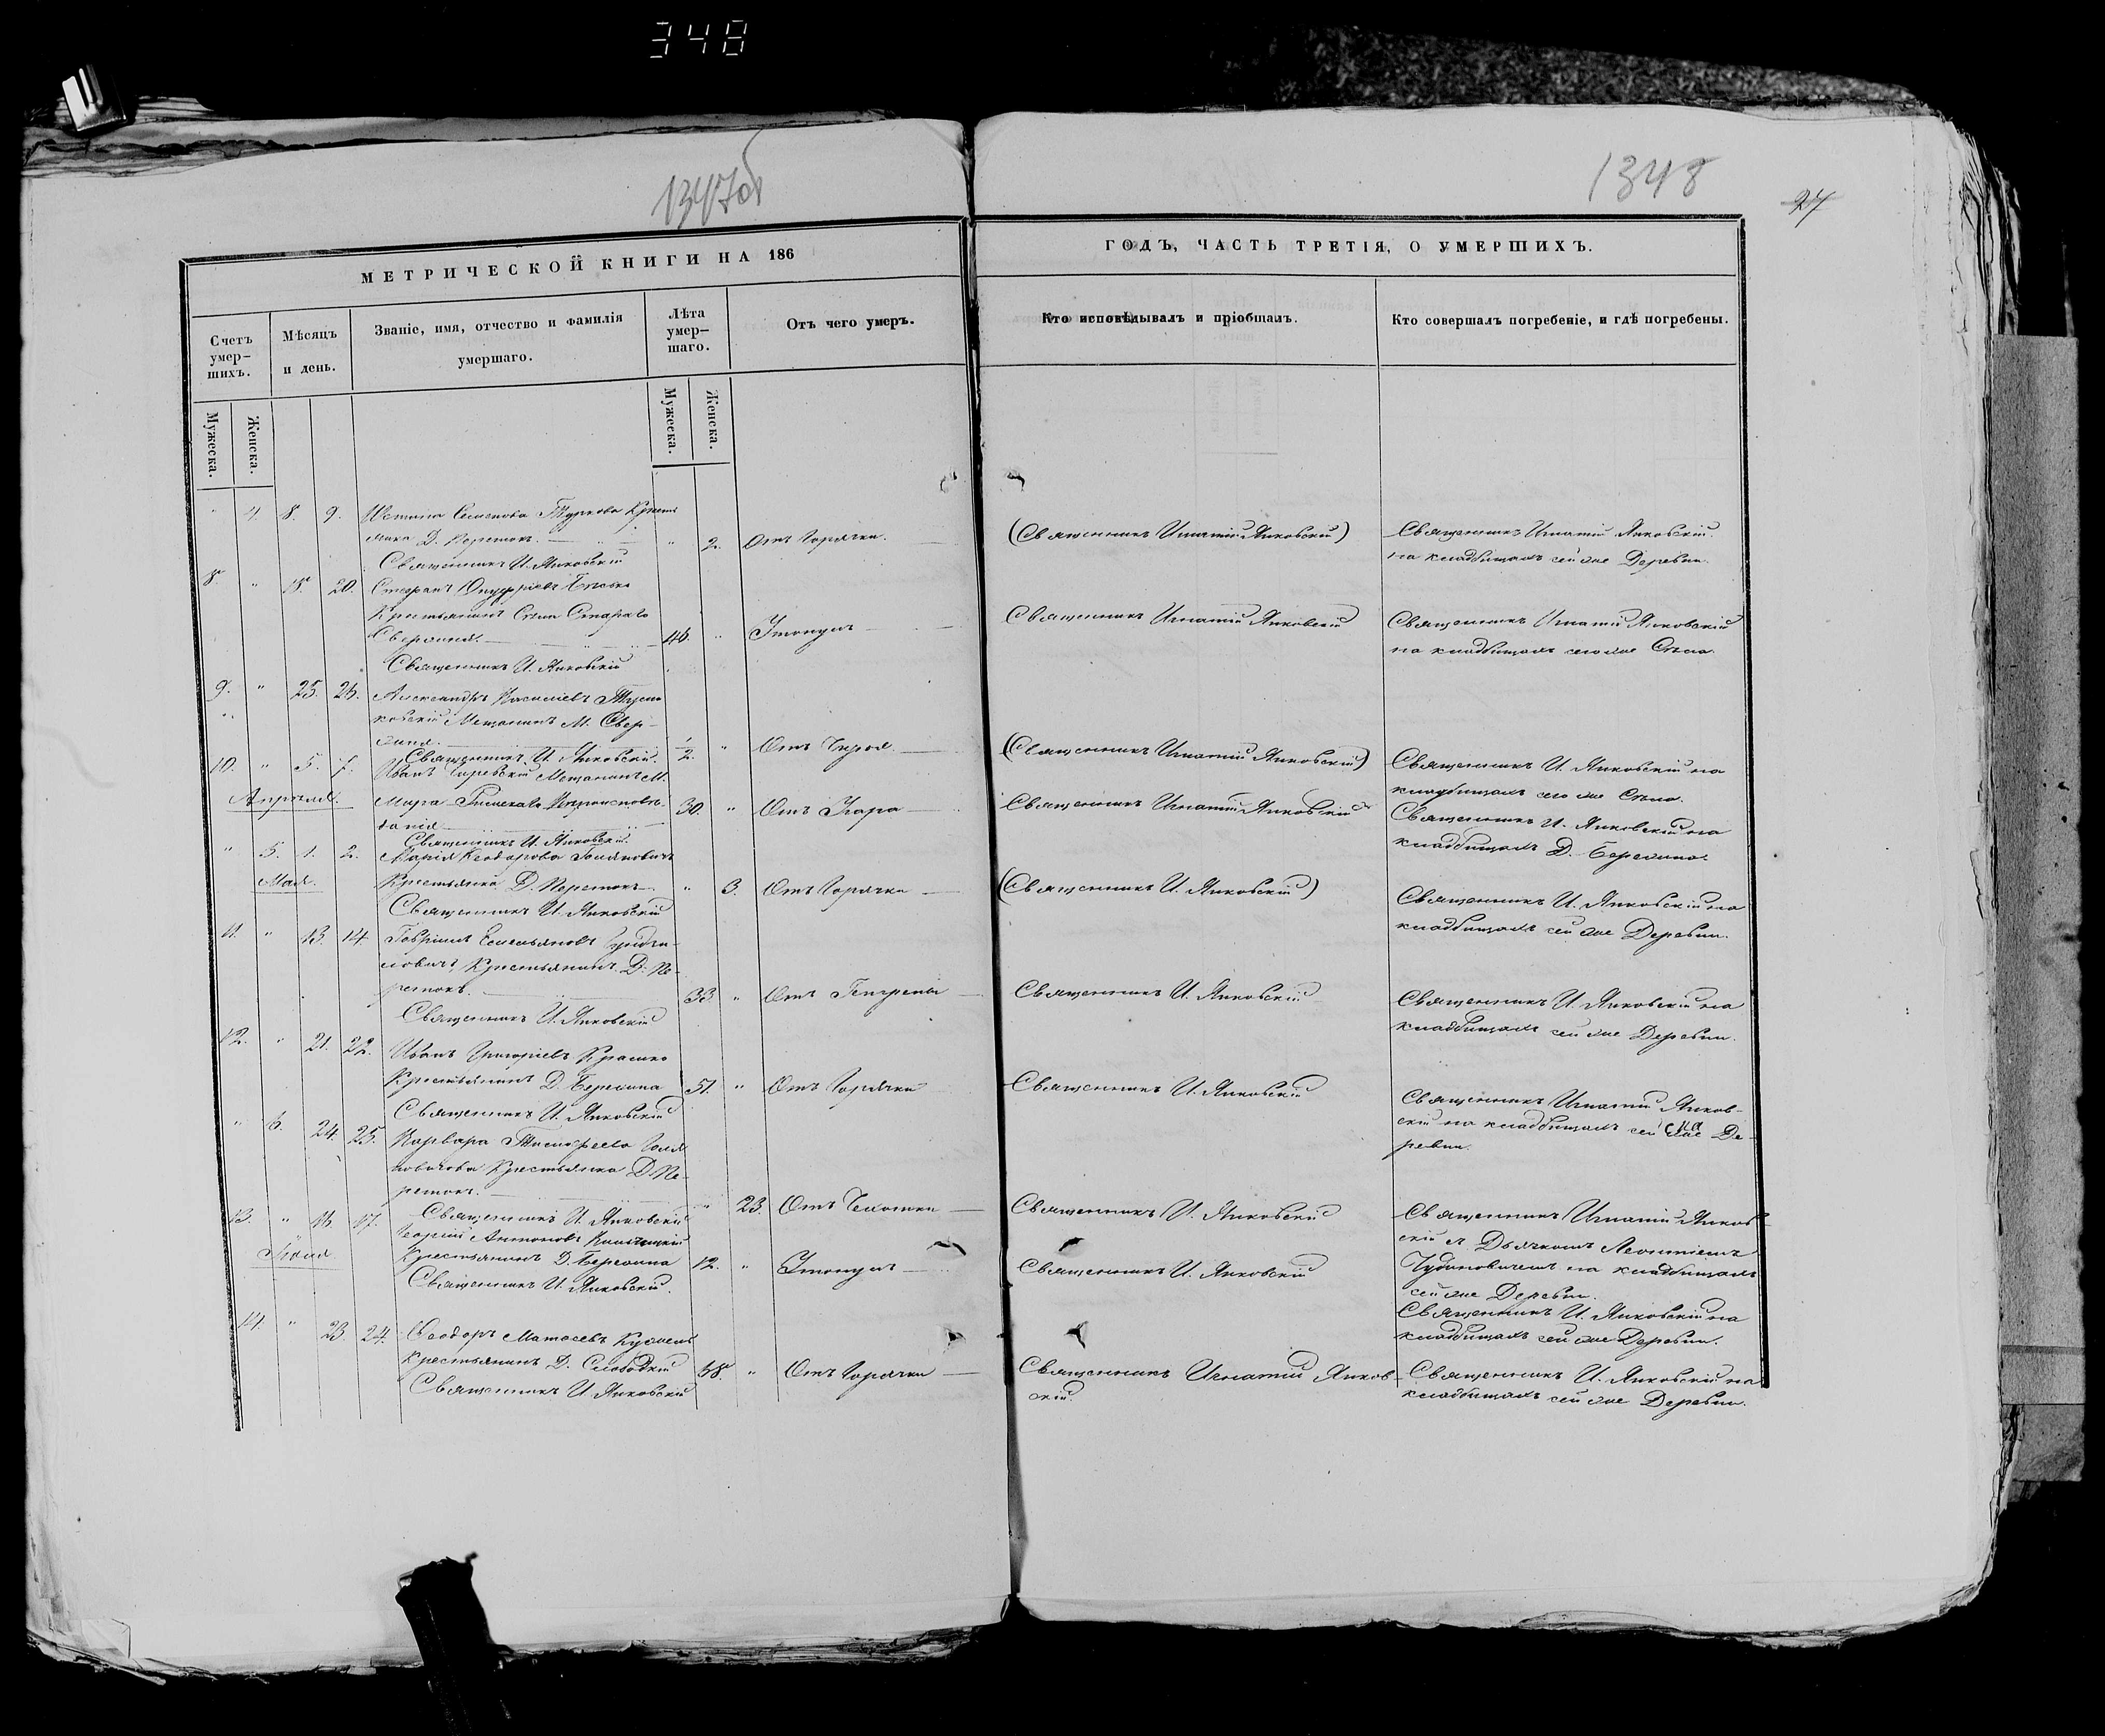 348
1347об
1348
27
МЕТРИЧЕСКОЙ КНИГИ НА 186
ГОДЪ, ЧАСТЬ ТРЕТІЯ, О УМЕРШИХЪ.
Счетъ умер-
шихъ.
Мѣсяцъ
и день.
Званіе, имя, отчество и фамилія
умершаго.
Лѣта
умер-
шаго.
Отъ чего умеръ.
Кто исповѣдывалъ и пріобщалъ.
Кто совершалъ погребеніе, и гдѣ погребены.
Мужеска.
Женска.
Мужеска.
Женска.
" 4. 8. 9.
Д. Перетокъ.
" 2. Отъ Горячки.
(Священникъ Игнатій Янковскій)
Священникъ Игнатій Янковскій
на кладбищахъ сей же Деревни.
Священникъ И. Янковскій
8 " 18. 20. Стефанъ Онуфріевъ
Крестьянинъ Села Стараго
Свержня.
46. " Утонулъ
Священникъ Игнатій Янковскій
Священникъ Игнатій Янковскій
на кладбищахъ сего же Села.
Священникъ И. Янковскій
9. " 25. 26. Александръ Василіевъ
Мещанинъ М. Свер-
жня.
1/2. "
(Священникъ Игнатій Янковскій)
Священникъ И. Янковскій на
кладбищахъ сего же Села.
Священникъ И. Янковскій.
10. " 5. 7. Иванъ Мещанинъ М.
Апрѣля.
Мира
30. " Отъ Удара
Священникъ Игнатій Янковскій
Священникъ И. Янковскій на
кладбищахъ Д. Березина.
Священникъ И. Янковскій.
" 5. 1. 2. Марія Ѳеодорова
Мая.
Крестьянка Д. Перетокъ
" 3. Отъ Горячки
(Священникъ И. Янковскій)
Священникъ И. Янковскій на
кладбищахъ сей же Деревни.
Священникъ И. Янковскій
11. " 13. 14. Гавріилъ Емельяновъ
Крестьянинъ Д. Пе-
ретокъ.
33. " Отъ Гангрены
Священникъ И. Янковскій
Священникъ И. Янковскій на
кладбищахъ сей же Деревни.
Священникъ И. Янковскій
12. " 21. 22. Иванъ Григоріевъ
Крестьянинъ Д. Березина
51. " Отъ Горячки
Священникъ И. Янковскій
Священникъ Игнатій Янков-
скій на кладбищахъ сей же Де-
ревни.
Священникъ И. Янковскій
" 6. 24. 25. Варвара Тимофеева
Крестьянка Д. Пе-
ретокъ.
" 23. Отъ Чахотки
Священникъ И. Янковскій
Священникъ Игнатій Янков-
скій съ Дьячкомъ Леонтіемъ
на кладбищахъ
сей же Деревни.
Священникъ И. Янковскій
13. " 16. 17. Георгій Антоновъ
Крестьянинъ Д. Березина
12. " Утонулъ
Священникъ И. Янковскій
Священникъ И. Янковскій на
кладбищахъ сей же Деревни.
Священникъ И. Янковскій.
14. " 23. 24. Ѳеодоръ Матѳеевъ
Крестьянинъ Д. Слободки
68. " Отъ Горячки
Священникъ Игнатій Янков-
скій.
Священникъ И. Янковскій на
кладбищахъ сей же Деревни.
Священникъ И. Янковскій